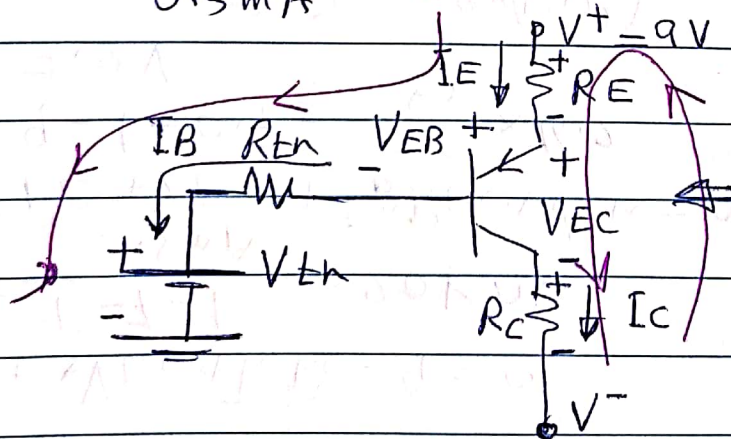 IE V+ = 9V
+
RE
-
IB Rth - VEB + +
VEC
+ Vth -
+
- RC IC
-
V-